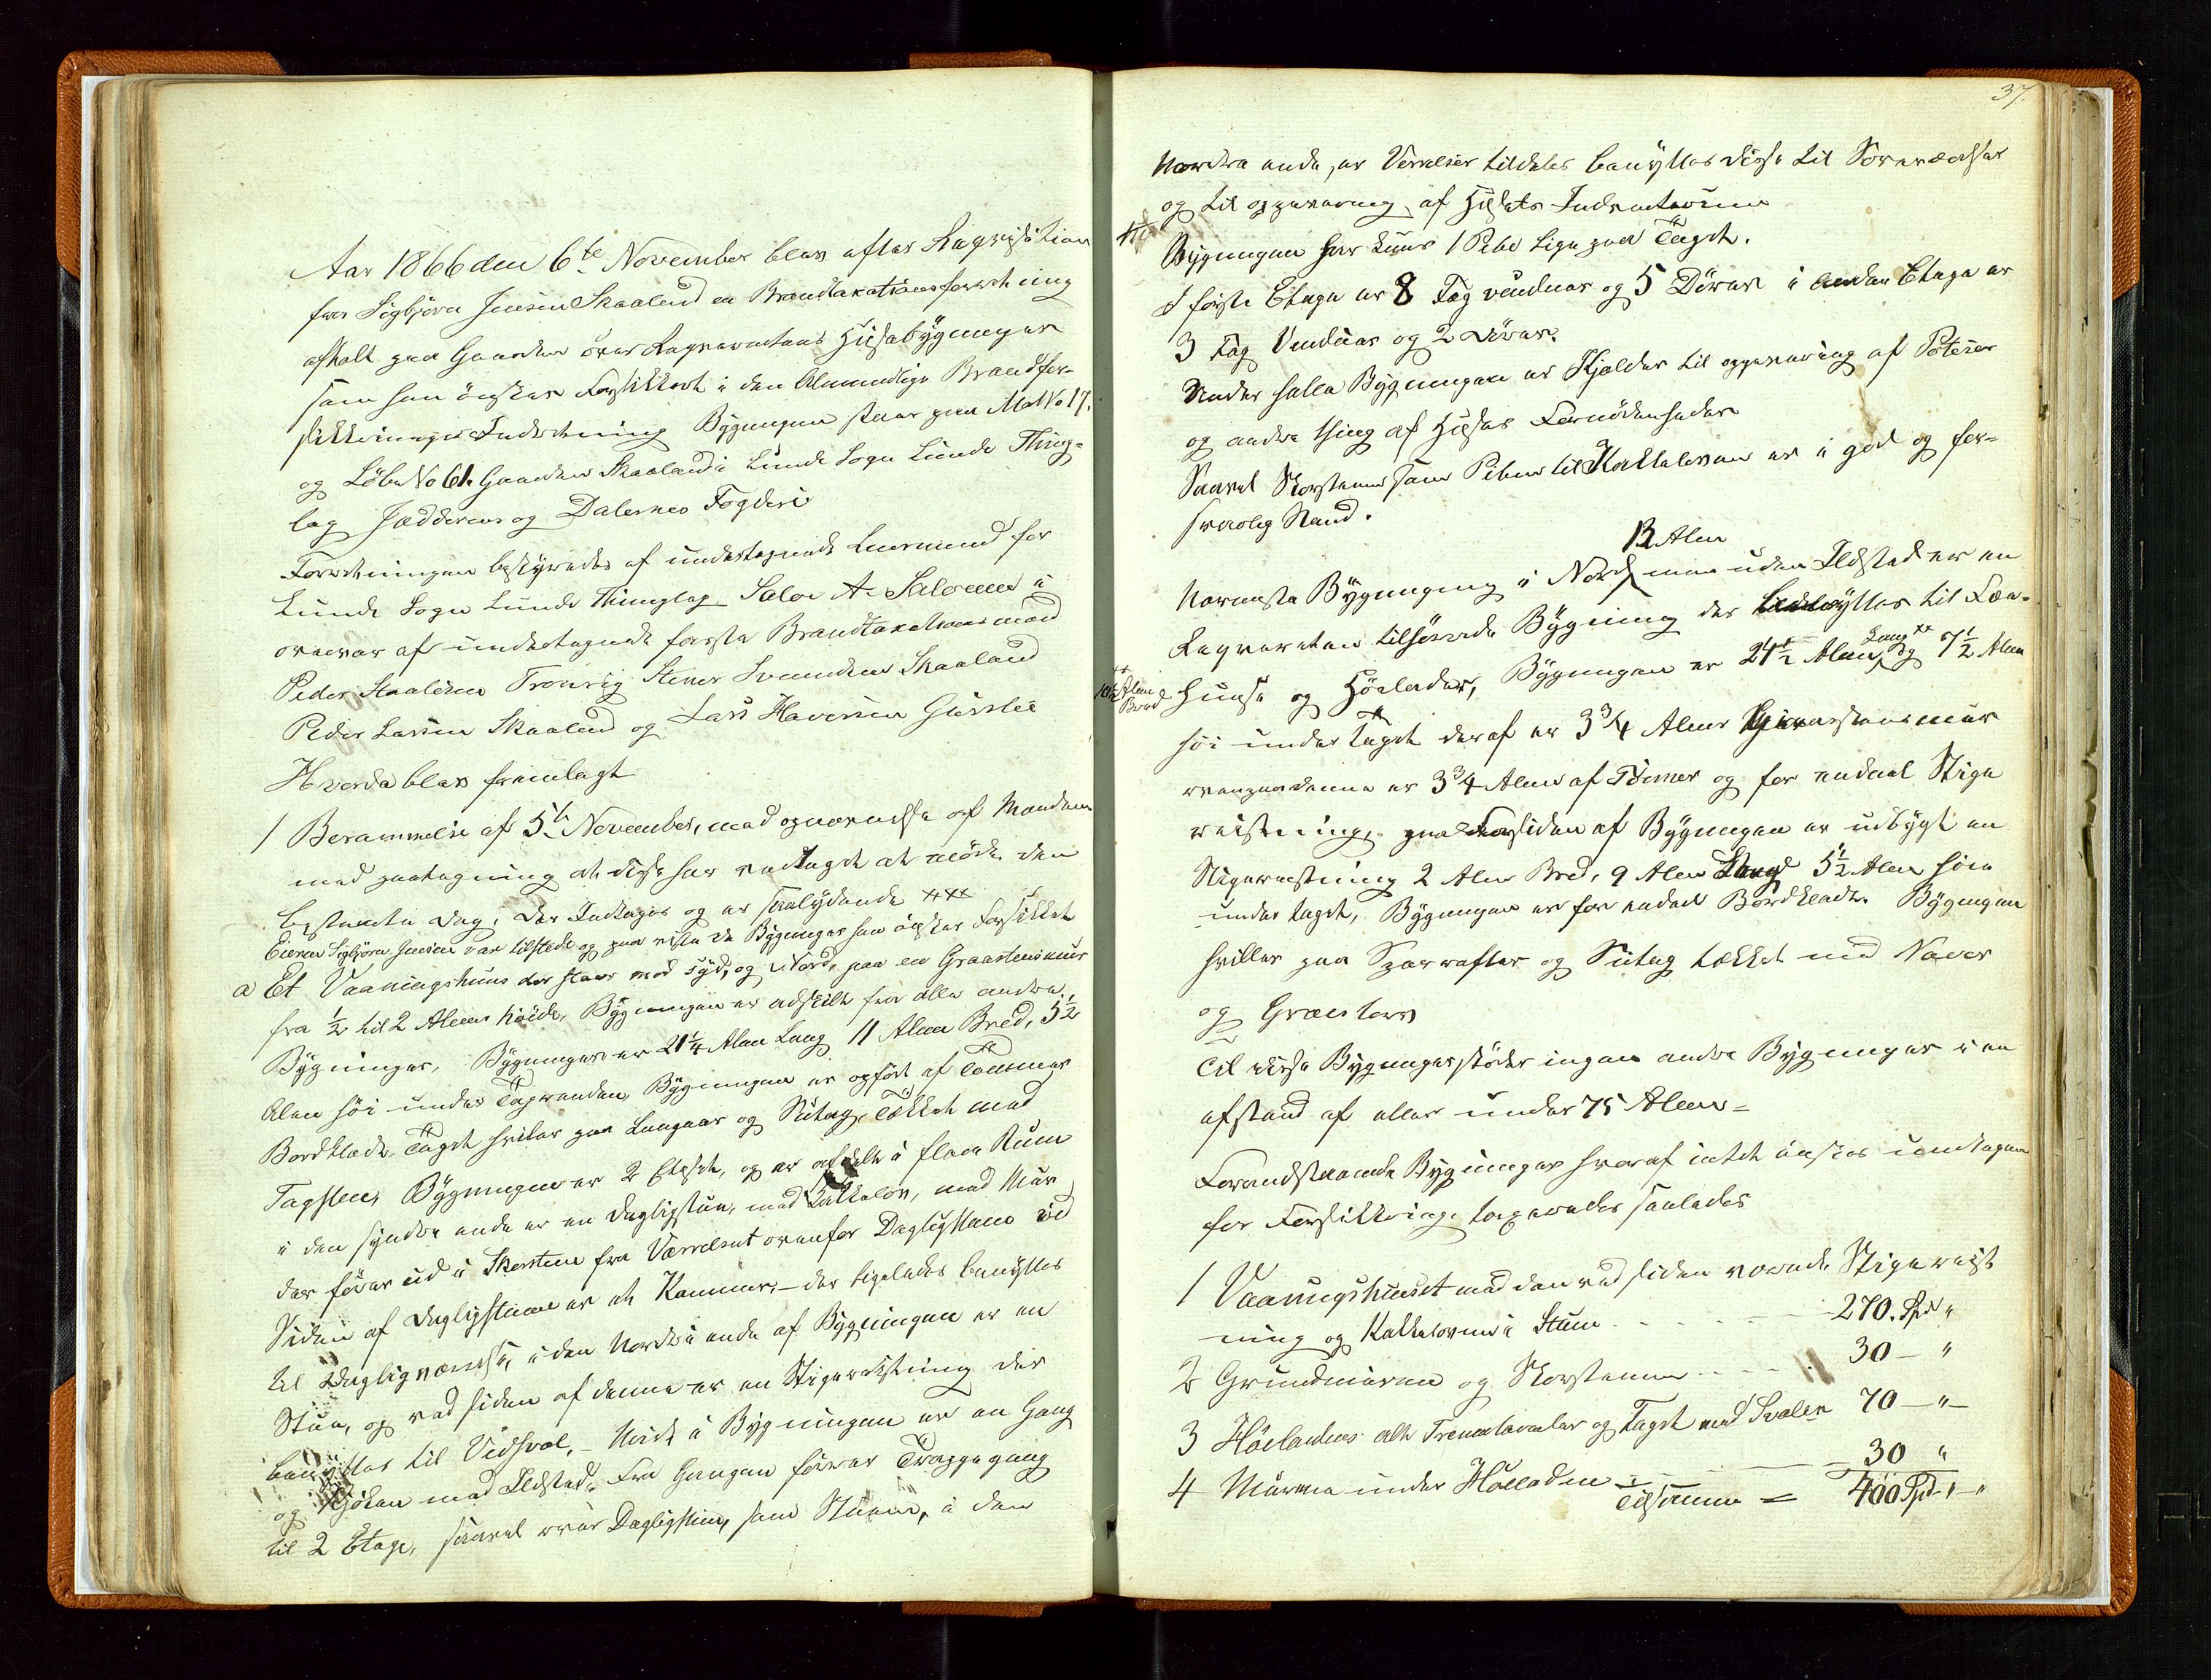 Aar 1866 den 6te November blev efter Reqvisition
fra Sigbjørn Jensen Skaaland en Brandtaxationsforretning
afholt paa Gaarden over Reqverentens Huse bygninger
som han ønsker Forsikkret i den Almindelige Brandfor-
sikkrings Indretning Bygningen staar paa Mat No 17.
og Løbe No 61. Gaarden Skaaland i Lunde Sogn Lunde Thing-
lag Jædderens og Dalernes Fogderi
Forretningen bestyredes af undertegnede Lensmand for
Lunde Sogn Lunde Thinglag Salve A. Salvesen i
overvær af undertegnede faste Brandtaxationsmænd
Peder Staalesen Tronvig Stener Svendsen Skaaland
Peder Larsen Skaaland og Lars Haversen Gursli
Hvorda blev fremlagt
1 Berammelse af 5te November, med opnævnelse af Mændene
med paategning at disse har vedtaget at møde den
bestemte dag, der Indtages og er saalydende xxx
Eieren Sigbjørn Jensen var tilstede og paaviste de Bygninger han ønsker forsikkret
a Et Vaaningshuus der staar mod Syd, og Nord, paa en Graastensmuur
fra ½ til 2 Alens høide, Bygningen er adskilt fra alle andre
Bygninger, Bygningen er 21¼ Alen Lang 11 Alen Bred, 5½
Alen høi under Tagrenden, Bygningen er opført af Tømmer
Bordklædt, Taget hviler paa Langaas og Sutag, Tækket med
Tagsten, Bygningen er 2 Etages, og er afdelt i flere Rum
i den søndre ende er en Dagligstue, med Kakkelov, med Mur
der fører ud i Skorsten fra Værrelset ovenfor Dagligstuen ved
Siden af Dagligstuen er et Kammer, - der ligeledes benyttes
til Dagligværelse, i den Nordre ende af Bygningen er en
Stue, og ved siden af denne er en Skigereisning der
benyttes til Vedsval, - Midt i Bygningen er en Gang
og Kjøken med Ildsted. Fra Gangen fører Trappegang
til 2 Etage, saavel over Dagligstue, som Stuen, i den
37.
Nordre ende, er Værrelser tildeles benyttes disse til Soverværelser
og til oppevaring af Husets Indventarium
Bygningen har kuns 1 Pibe lige paa Taget.
I første Etage er 8 Fag vinduer og 5 Dørar i anden Etage er
3 Fag Vinduer og 2 Dørar.
Under hele Bygningen er Kjelder til oppevaring af Poteter
og andre thing af Huses Fornødenheder
Saavel Skorstenen som Piben til Kakkelovnen er i god og for-
svarlig Stand.
12 Alen
Nærmeste Bygning i Nord men uden Ildsted er en
Reqverenten tilhørende Bygning der benyttes til Fæe-
Lang xx
xx 10½ Alen Bred
huus og Høelader, Bygningen er 24½ Alen, og 7½ Alen
høi under Taget deraf er 3¾ Alens Graastensmur
ovenpaa denne er 3¾ Alens af Tømmer og for endeel Skige
reisning, paa Forsiden af Bygningen er udbygt en
Skigereisning 2 Alen Bred, 9 Alen Lang 5½ Alen høie
under taget, Bygningen er for endeel Bordklædt. Bygningen
hviller paa Sparrafter og Sutag tækket med Næver
og Græstorv
Til disse Bygninger støder ingen andre Bygninger i en
afstand af eller under 75 Alen -
Foranstaaende Bygninger hvoraf intet ønskes undtagen
for Forsikkring, taxeredes saaledes
1 Vaaningshuuset med den ved siden værende Skigereis-
ning og Kakkelovnen i Stuen - - - - 270. Spd "
2 Grundmuren og Skorstenen - - - - 30 - "
3 Høeladens alle Træmaterialer og Taget med Svalen 70 - " -
4 Murene under Høeladen - - - 30 "
Tilsammen = 400 Spd - " - "